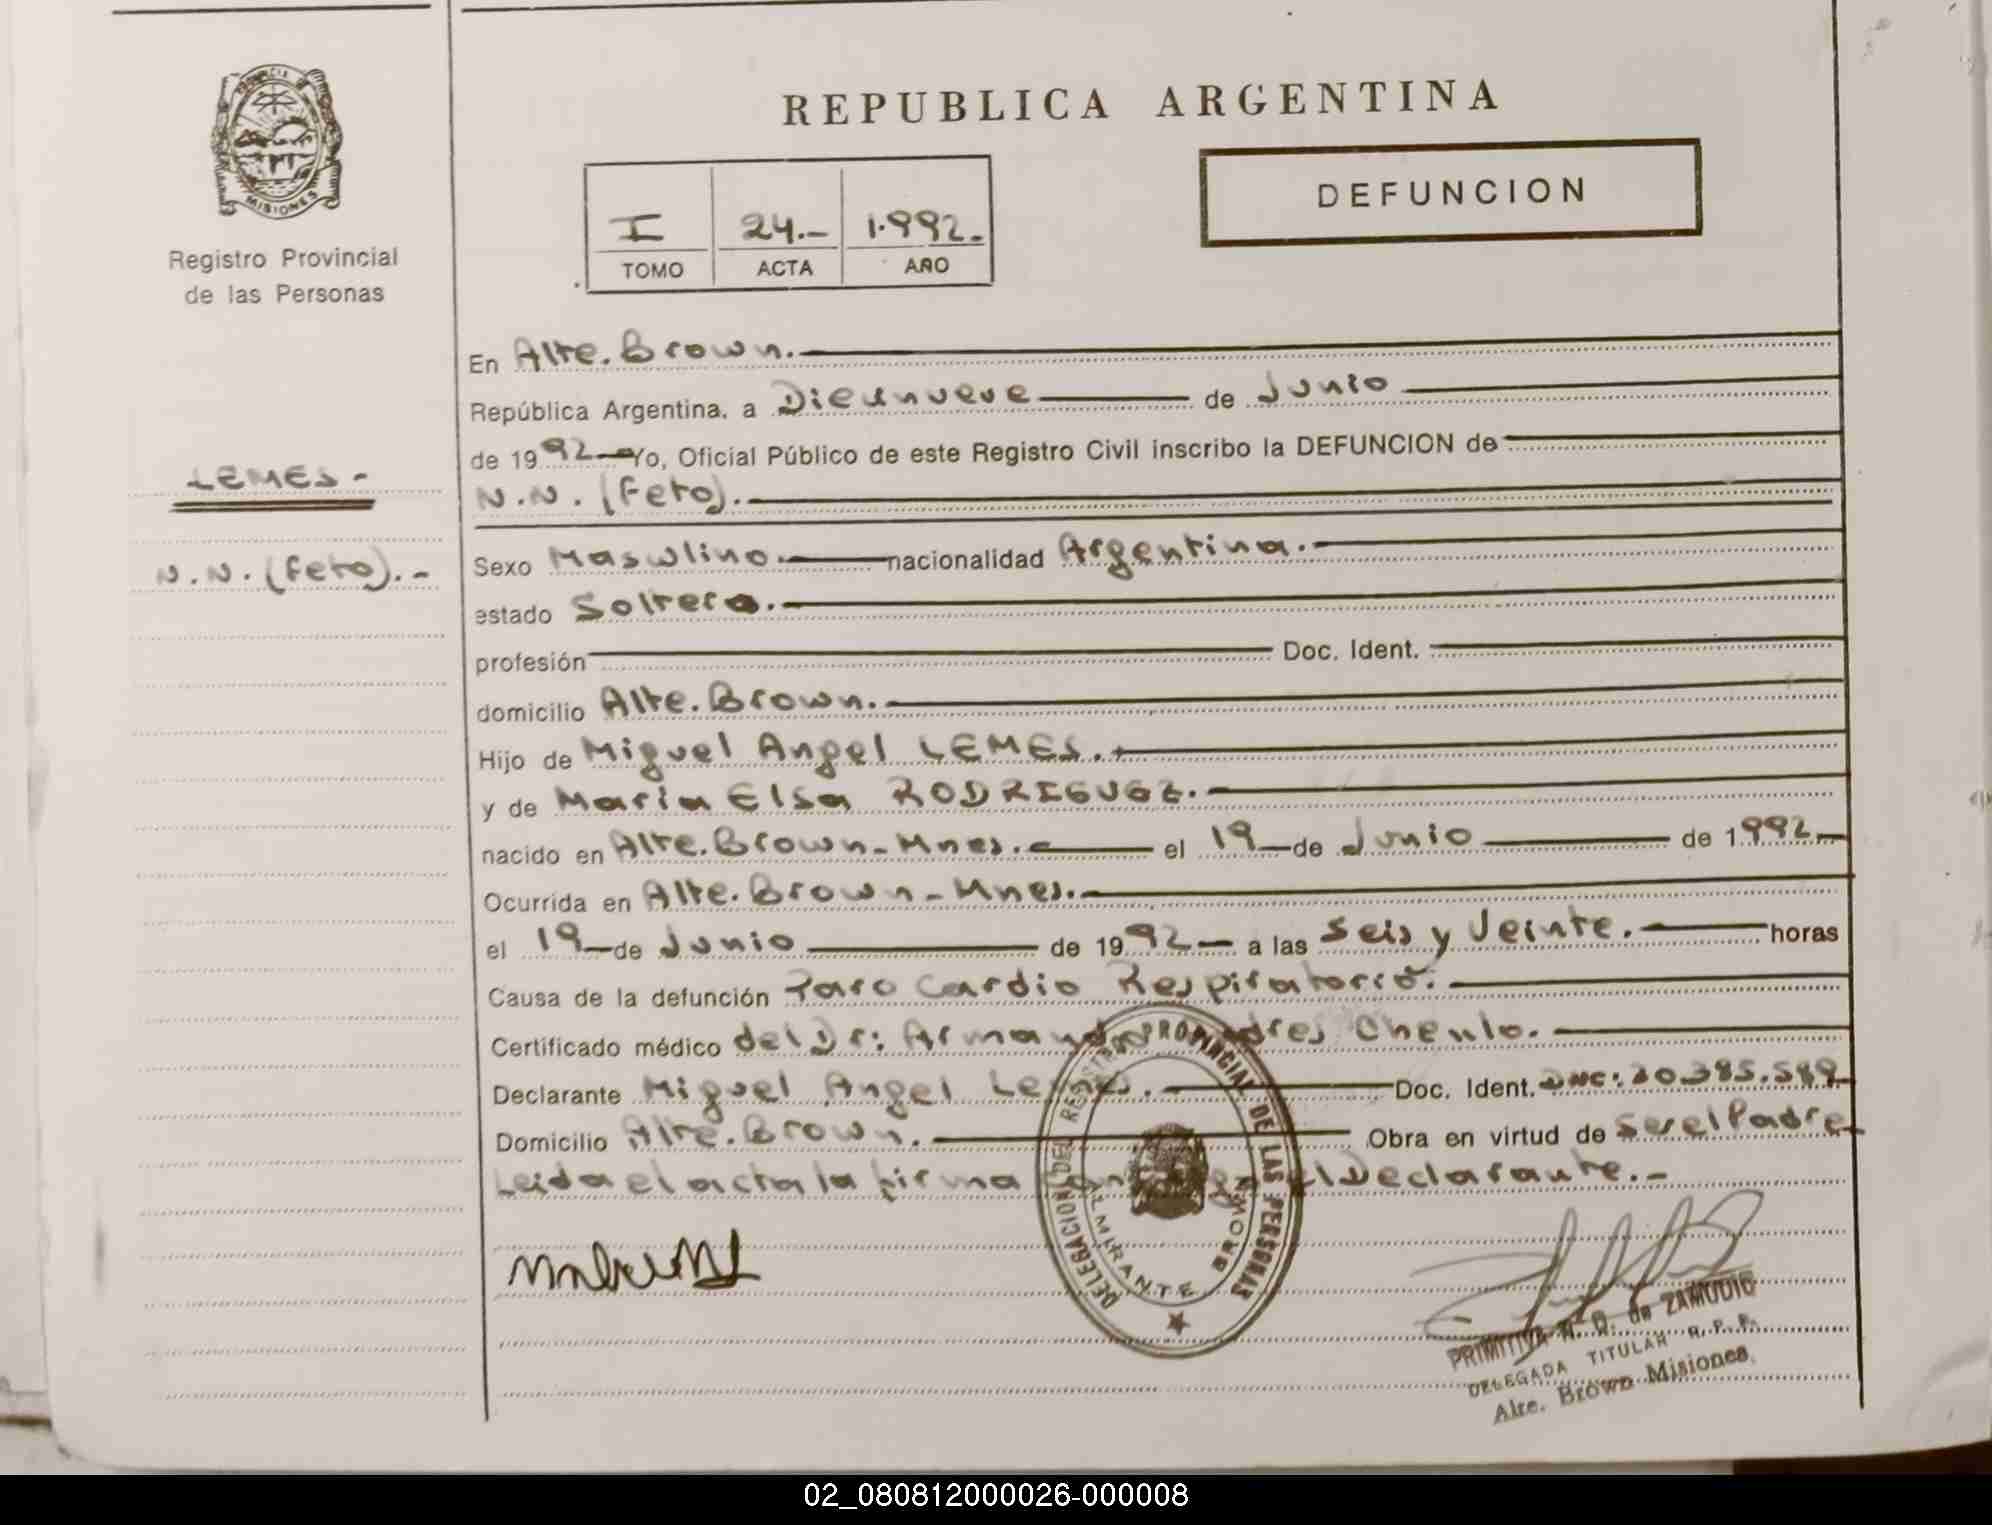 PROVINCIA DE
MISIONES
Registro Provincial
de las Personas
LEMES -
N.N. (Feto). -
REPUBLICA ARGENTINA
DEFUNCION
I 24.- 1.992.-
TOMO ACTA AÑO
En Alte. Brown.
República Argentina, a Diecinueve de Junio
de 1992 Yo, Oficial Público de este Registro Civil inscribo la DEFUNCION de
N.N. (Feto).
Sexo Masculino. nacionalidad Argentina.
estado Soltero.
profesión Doc. Ident.
domicilio Alte. Brown.
Hijo de Miguel Angel LEMES.
y de Maria Elsa RODRIGUEZ.
nacido en Alte. Brown - Mnes. el 19 de Junio de 1992
Ocurrida en Alte. Brown - Mnes.
el 19 de Junio de 1992 a las Seis y Veinte. horas
Causa de la defunción Paro Cardio Respiratorio.
Certificado médico del Dr: Armando
Declarante Miguel Angel Lemes. Doc. Ident.
Domicilio Alte. Brown. Obra en virtud de Ser el Padre
Leida el acta la firma el Declarante. -
DELEGACION DEL REGISTRO PROVINCIAL DE LAS PERSONAS
ALMIRANTE BROWN
PRIMITIVA N. D. de ZAMUDIO
DELEGADA TITULAR R. P. P.
Alte. Brown Misiones.
02_080812000026-000008